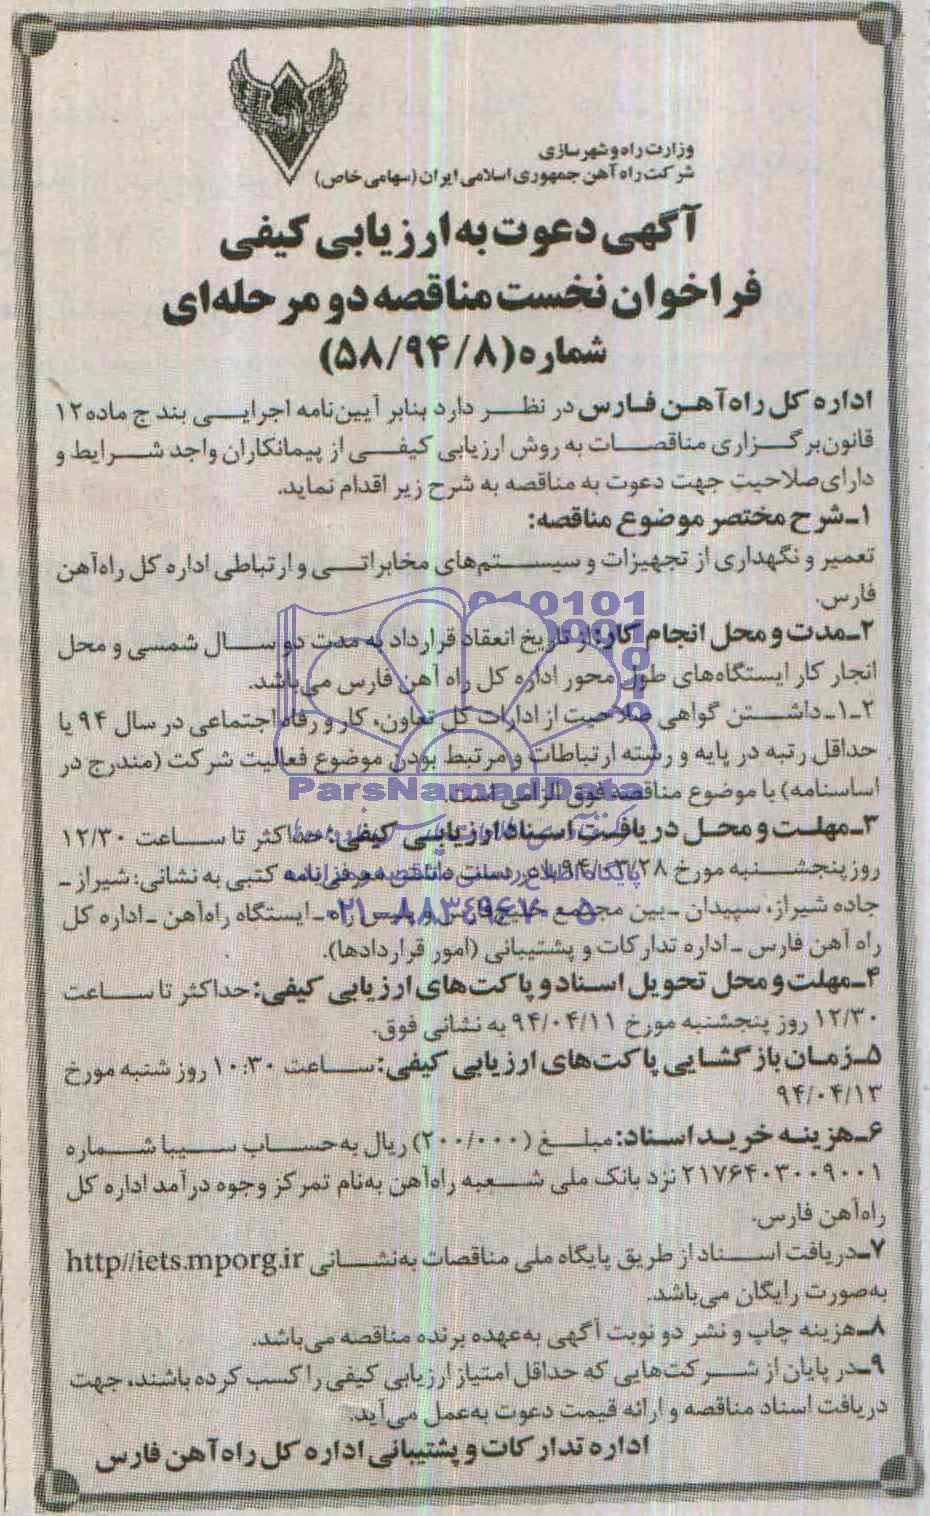 وزارت راه و شهرسازی
شرکت راه آهن جمهوری اسلامی ایران (سهامی خاص)
آگهی دعوت به ارزیابی کیفی
فراخوان نخست مناقصه دو مرحله‌ای
شماره (۵۸/۹۴/۸)
اداره کل راه‌آهن فارس در نظر دارد بنابر آیین‌نامه اجرایی بند ج ماده ۱۲
قانون برگزاری مناقصات به روش ارزیابی کیفی از پیمانکاران واجد شرایط و
دارای صلاحیت جهت دعوت به مناقصه به شرح زیر اقدام نماید.
۱ـ شرح مختصر موضوع مناقصه:
تعمیر و نگهداری از تجهیزات و سیستم‌های مخابراتی و ارتباطی اداره کل راه‌آهن
فارس.
۲ـ مدت و محل انجام کار: از تاریخ انعقاد قرارداد به مدت دو سال شمسی و محل
انجار کار ایستگاه‌های طول محور اداره کل راه آهن فارس می‌باشد.
۲ـ۱ـ داشتن گواهی صلاحیت از ادارات کل تعاون، کار و رفاه اجتماعی در سال ۹۴ یا
حداقل رتبه در پایه و رشته ارتباطات و مرتبط بودن موضوع فعالیت شرکت (مندرج در
اساسنامه) با موضوع مناقصه فوق الزامی است.
ParsNamadData
۳ـ مهلت و محل دریافت اسناد ارزیابی کیفی: حداکثر تا ساعت ۱۲/۳۰
روز پنجشنبه مورخ ۹۴/۰۳/۲۸ با در دست داشتن معرفی‌نامه کتبی به نشانی: شیراز ـ
پایگاه اطلاع رسانی مناقصه و مزایده
جاده شیراز، سپیدان ـ بین مجتمع خلیج‌فارس و پلیس راه ـ ایستگاه راه‌آهن ـ اداره کل
۰۲۱-۸۸۳۴۹۶۷۰-۵
راه آهن فارس ـ اداره تدارکات و پشتیبانی (امور قراردادها).
۴ـ مهلت و محل تحویل اسناد و پاکت‌های ارزیابی کیفی: حداکثر تا ساعت
۱۲/۳۰ روز پنجشنبه مورخ ۹۴/۰۴/۱۱ به نشانی فوق.
۵ـ زمان بازگشایی پاکت‌های ارزیابی کیفی: ساعت ۱۰:۳۰ روز شنبه مورخ
۹۴/۰۴/۱۳
۶ـ هزینه خرید اسناد: مبلغ (۲۰۰/۰۰۰) ریال به حساب سیبا شماره
۲۱۷۶۴۰۳۰۰۹۰۰۱ نزد بانک ملی شعبه راه‌آهن به‌نام تمرکز وجوه درآمد اداره کل
راه‌آهن فارس.
۷ـ دریافت اسناد از طریق پایگاه ملی مناقصات به‌نشانی http//iets.mporg.ir
به‌صورت رایگان می‌باشد.
۸ـ هزینه چاپ و نشر دو نوبت آگهی به‌عهده برنده مناقصه می‌باشد.
۹ـ در پایان از شرکت‌هایی که حداقل امتیاز ارزیابی کیفی را کسب کرده باشند، جهت
دریافت اسناد مناقصه و ارائه قیمت دعوت به‌عمل می‌آید.
اداره تدارکات و پشتیبانی اداره کل راه‌آهن فارس